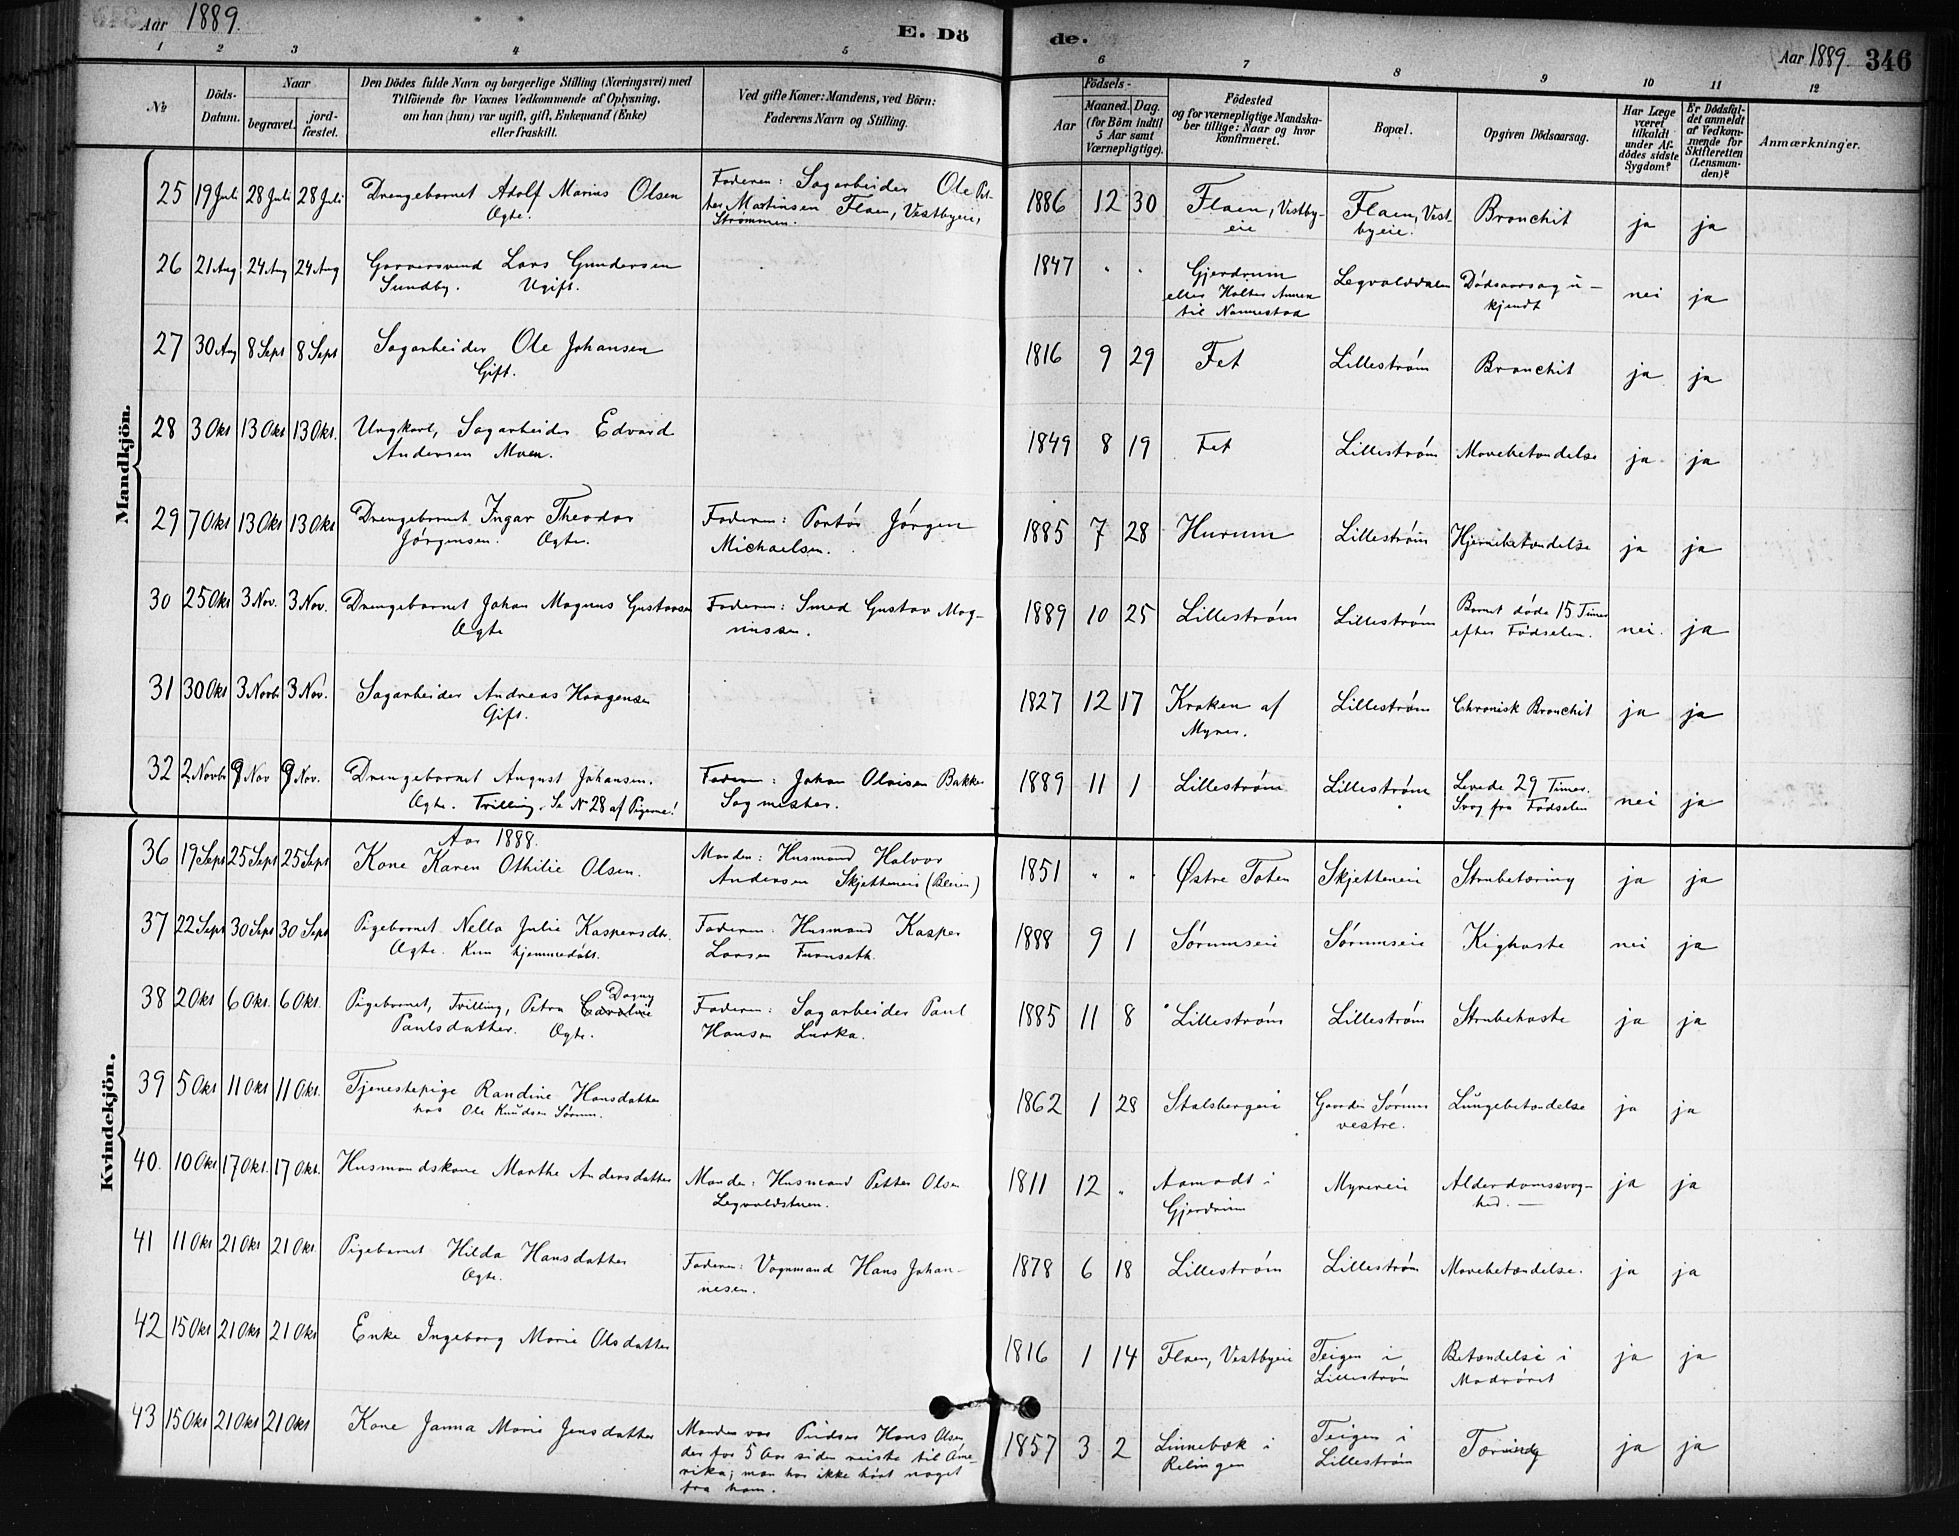 Aar 1889. E. Dö
de. Aar 1889. 346
1 2 3 4 5
6 7 8 9 10 11 12
No
Döds-
Datum.
Naar
begravet.
jord-
fæstet.
Den Dödes fulde Navn og borgerlige Stilling (Næringsvei) med
Tilföiende for Voxnes Vedkommende af Oplysning,
om han (hun) var ugift, gift, Enkemand (Enke)
eller fraskilt.
Ved gifte Koner: Mandens, ved Börn:
Faderens Navn og Stilling.
Födsels-
Aar
Maaned. Dag.
(for Börn indtil
5 Aar samt
Værnepligtige).
Födested
og for værnepligtige Mandska-
ber tillige: Naar og hvor
konfirmeret.
Bopæl.
Opgiven Dödsaarsag.
Har Læge
været
tilkaldt
under Af-
dödes sidste
Sygdom?
Er Dödsfal-
det anmeldt
af Vedkom-
mende for
Skifteretten
(Lensman-
den)?
Anmærkninger.
Mandkjön.
25 19 Juli 28 Juli 28 Juli Drengebarnet Adolf Marius Olsen
Ægte.
Faderen: Sagarbeider Ole Pet-
ter Martinsen Flaen, Vestbyeie,
Strømmen.
1886 12 30 Flaen, Vestby-
eie
Flaen, Vest-
byeie.
Bronchit ja ja
26 21 Aug 24 Aug 24 Aug Garversvend Lars Gundersen
Sundby. Ugift.
1847 " " Gjerdrum
eller Holter Annex
til Nannestad
Legvolddalen Dødsaarsag u-
kjendt
nei ja
27 30 Aug 8 Sept 8 Sept Sagarbeider Ole Johansen
Gift.
1816 9 29 Fet Lillestrøm Bronchit ja ja
28 3 Okt 13 Okt 13 Okt. Ungkarl, Sagarbeider Edvard
Andersen Moen.
1849 8 19 Fet Lillestrøm Mavebetændelse ja ja
29 7 Okt 13 Okt 13 Okt Drengebarnet Ingar Theodor
Jørgensen. Ægte.
Faderen: Portør Jørgen
Michaelsen.
1885 7 28 Hurum Lillestrøm Hjernebetændelse ja ja
30 25 Okt 3 Nov. 3 Nov. Drengebarnet Johan Magnus Gustavsen
Ægte
Faderen: Smed Gustav Mag-
nussen.
1889 10 25 Lillestrøm Lillestrøm Barnet døde 15 Timer
efter Fødselen.
nei. ja
31 30 Okt 3 Novbr 3 Nov. Sagarbeider Andreas Haagensen
Gift.
1827 12 17 Kraken af
Myrer.
Lillestrøm Chronisk Bronchit ja ja
32 2 Novbr 9 Nov 9 Nov. Drengebarnet August Johansen.
Ægte. Trilling. Se No 28 af Pigerne!
Faderen: Johan Olaisen Bakke
Sagmester.
1889 11 1 Lillestrøm Lillestrøm Levede 29 Timer.
Svag fra Fødselen
nei ja
Kvindekjön.
Aar 1888.
36 19 Sept 25 Sept 25 Sept Kone Karen Othilie Olsen.
Manden: Husmand Halvor
Andersen Skjetteneie (Bleien)
1851 " " Østre Toten Skjetteneie Strubetæring ja ja
37 22 Sept 30 Sept 30 Sept Pigebarnet Nella Julie Kaspersdtr.
Ægte. Kun hjemmedøbt.
Faderen: Husmand Kasper
Larsen Furuseth.
1888 9 1 Sørumseie Sørumseie Kighoste nei ja
38 2 Okt 6 Okt. 6 Okt. Pigebarnet, Tvilling, Petra Caroline Dagny
Paulsdatter. Ægte.
Faderen: Sagarbeider Paul
Hansen Lurka.
1885 11 8 Lillestrøm Lillestrøm Strubehoste ja ja
39 5 Okt 11 Okt 11 Okt. Tjenestepige Randine Hansdatter
hos Ole Knudsen Sørum.
1862 1 28 Stalsbergeie Gaarden Sørum
vestre.
Lungebetændelse ja ja
40. 10 Okt 17 Okt. 17 Okt. Husmandskone Marthe Andersdatter
Manden: Husmand Petter Olsen
Legvoldstuen.
1811 12 " Aamodt i
Gjerdrum
Myrereie Alderdomssvag-
hed.
ja ja
41 11 Okt 21 Okt 21 Okt. Pigebarnet Hilda Hansdatter
Ægte.
Faderen: Vognmand Hans Johan-
nesen.
1878 6 18 Lillestrøm Lillestrøm Mavebetændelse. ja ja
42 15 Okt 21 Okt 21 Okt Enke Ingeborg Marie Olsdatter
1816 1 14 Flaen, Vestbyeie Teigen i
Lillestrøm
Betændelse i
Madrøret
ja ja
43 15 Okt 21 Okt 21 Okt Kone Janna Marie Jensdatter
Manden var Hans Olsen
der for 5 Aar siden reiste til Ame-
rika; man har ikke hørt noget
fra ham.
1857 3 2 Linnebæk i
Relingen
Teigen i
Lillestrøm
Tæring ja ja